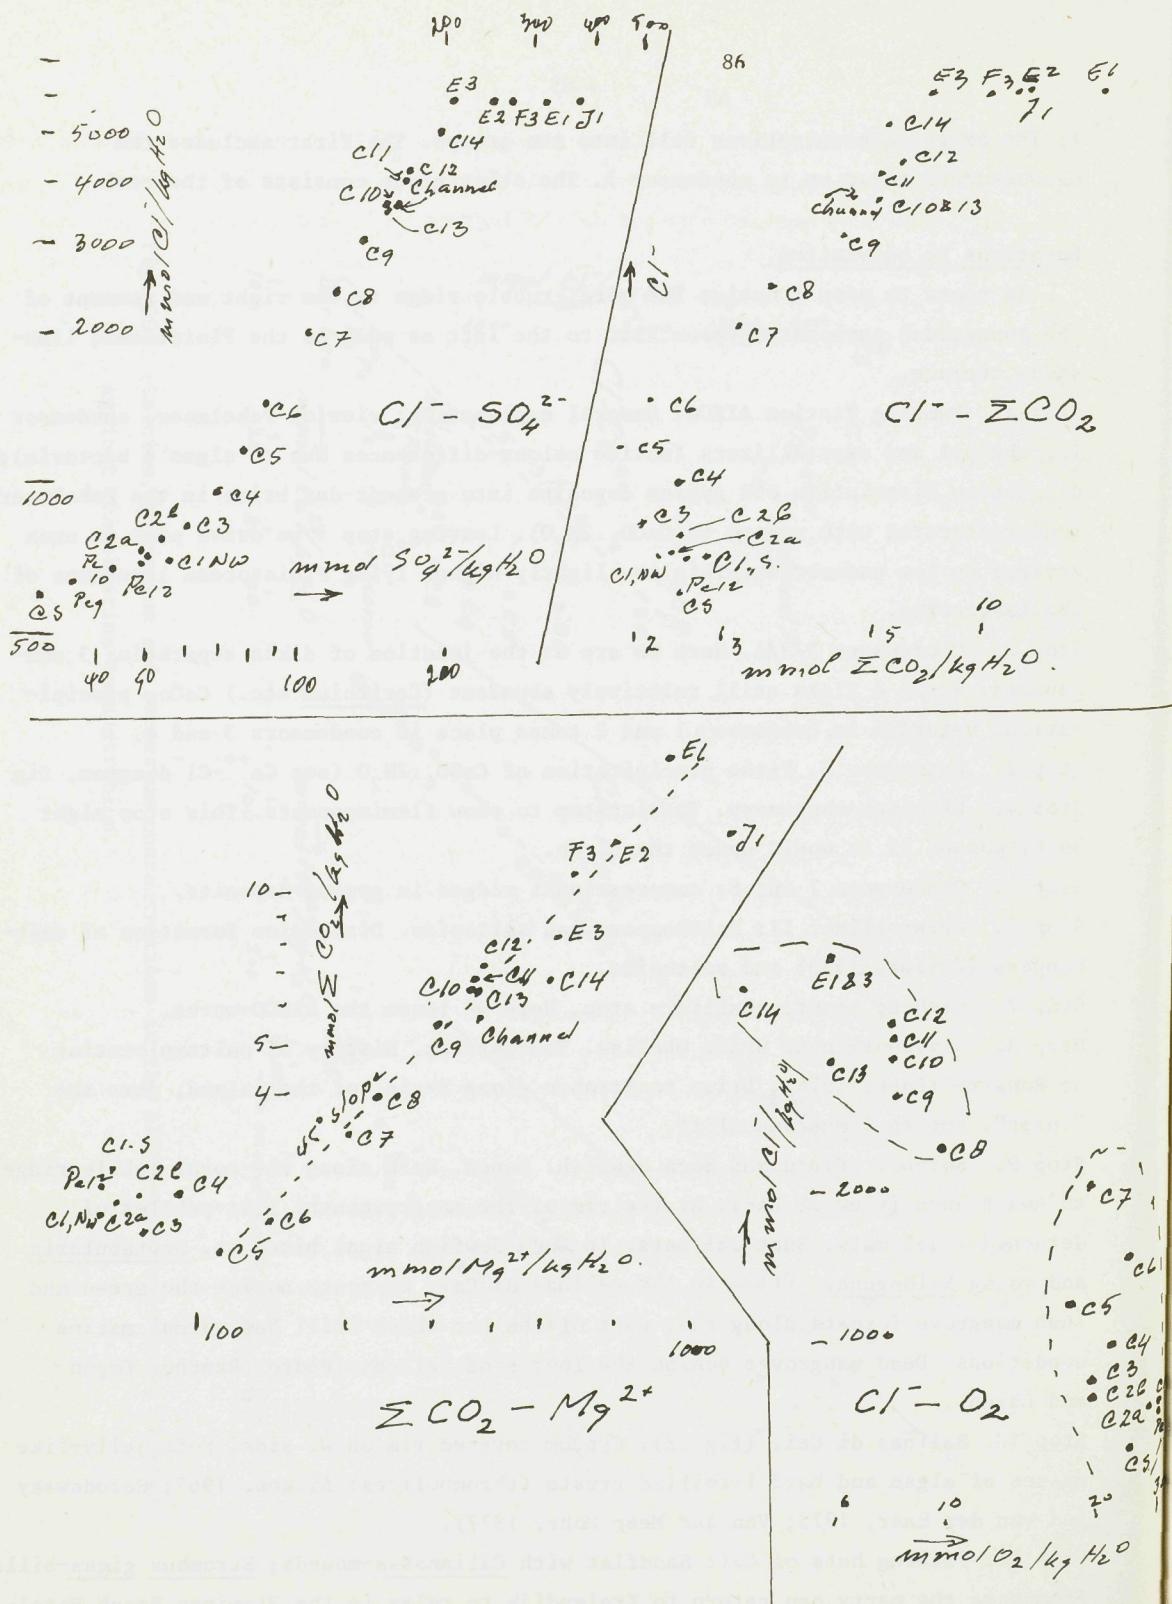 86
200 300 400 500
5000
4000
3000
2000
1000
500
mmol Cl⁻/kg H₂O
E3
E2 F3 E1 J1
C14
C11
C12
C10
Channel
C13
C9
C8
C7
C6
C5
C4
C3
C2b
C2a
C1NW
Pe 10
Pe12
Pe9
CS
Cl⁻ - SO₄²⁻
mmol SO₄²⁻/kg H₂O
40 50 100 200
E3 F3 E2 E1
J1
C14
C12
C11
Channel C10&13
C9
C8
C7
C6
C5
C4
C3
C2b
C2a
C1,NW
C1,S.
Pe12
CS
Cl⁻
Cl⁻ - ΣCO₂
2 3 5 10
mmol ΣCO₂/kg H₂O.
mmol ΣCO₂/kg H₂O
10
5
4
E1
J1
F3 E2
E3
C12
C11
C14
C10
C13
Channel
C9
C8
C7
C6
C5
C1-S
Pe12
C2b
C4
C1,NW
C2a
C3
mmol Mg²⁺/kg H₂O.
100 1000
ΣCO₂ - Mg²⁺
E1&3
C14
C12
C11
C10
C13
C9
C8
C7
C6
C5
C4
C3
C2b
C2a
CS
mmol Cl⁻/kg H₂O
2000
1000
Cl⁻ - O₂
6 10 20
mmol O₂/kg H₂O